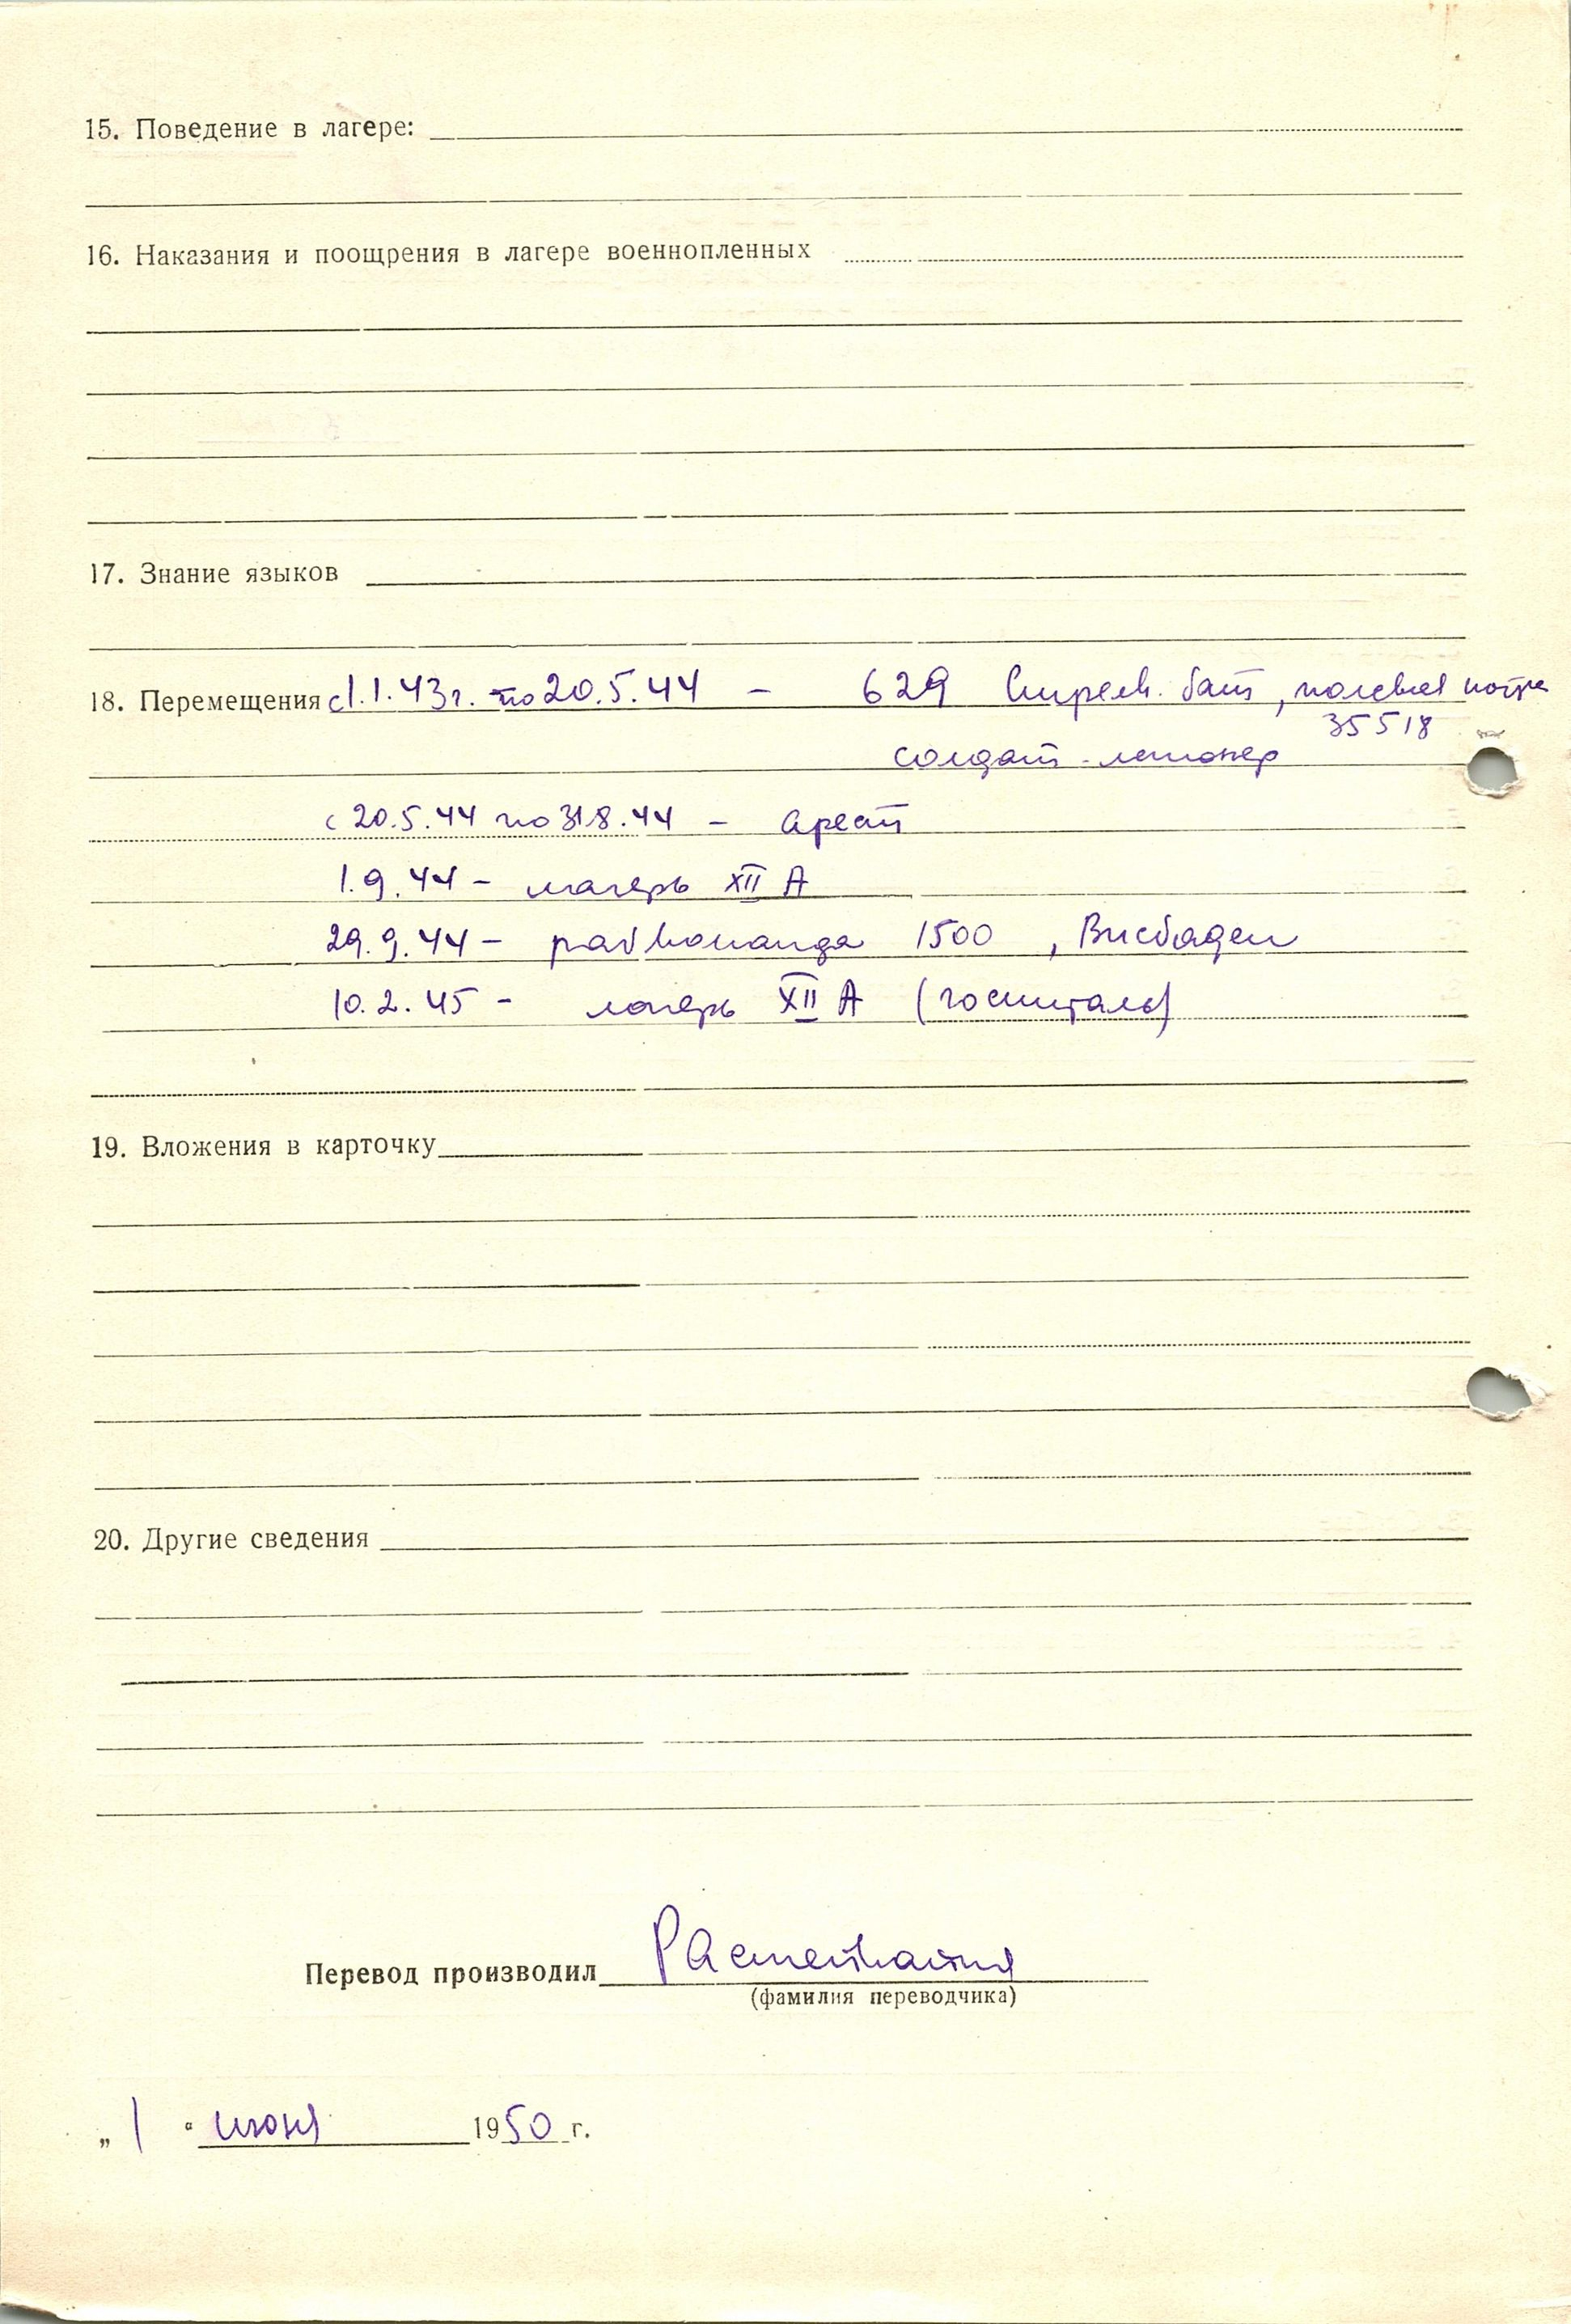 15. Поведение в лагере:
16. Наказания и поощрения в лагере военнопленных
17. Знание языков
18. Перемещения с 1.1.43 г. по 20.5.44 – 629 стрелк. бат, полевая почта
35518
солдат-легионер
с 20.5.44 по 31.8.44 – арест
1.9.44 – лагерь XII А
29.9.44 – рабкоманда 1500, Висбаден
10.2.45 – лагерь XII А (госпиталь)
19. Вложения в карточку
20. Другие сведения
Перевод производил
(фамилия переводчика)
„ 1 “ июня 1950 г.